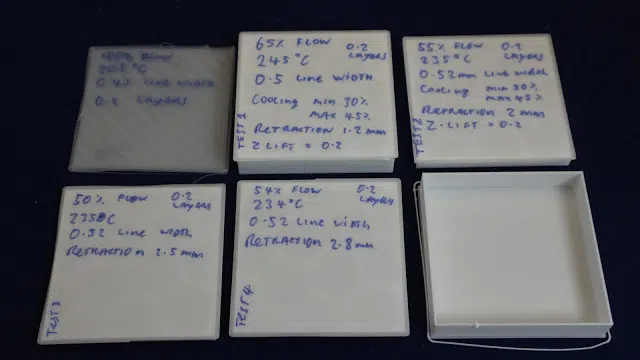 100% FLOW
205 °C
0.2 LAYERS
65% FLOW 0.2
245°C LAYERS
0.5 LINE WIDTH
COOLING MIN 30%
MAX 45%
RETRACTION 1.2 mm
Z LIFT = 0.2
TEST 1
55% FLOW 0.2
235°C LAYERS
0.52mm LINE WIDTH
COOLING MIN 30%
MAX 45%
RETRACTION 2 mm
Z-LIFT = 0.2
TEST 2
50% FLOW 0.2
LAYERS
235°C
0.52 LINE WIDTH
RETRACTION 2.5 mm
TEST 3
54% FLOW 0.2
234°C LAYERS
0.52 LINE WIDTH
RETRACTION 2.8mm
TEST 4